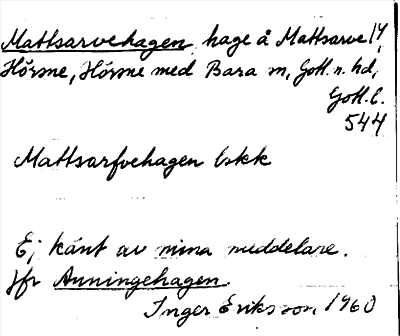 Mattsarvehagen, hage å Mattsarve 14,
Hörsne, Hörsne med Bara sn, Gotl. n. hd,
Gotl. l.
544
Mattsarfvehagen bskk
Ej känt av mina meddelare.
Jfr Anningehagen.
Inger Eriksson 1960